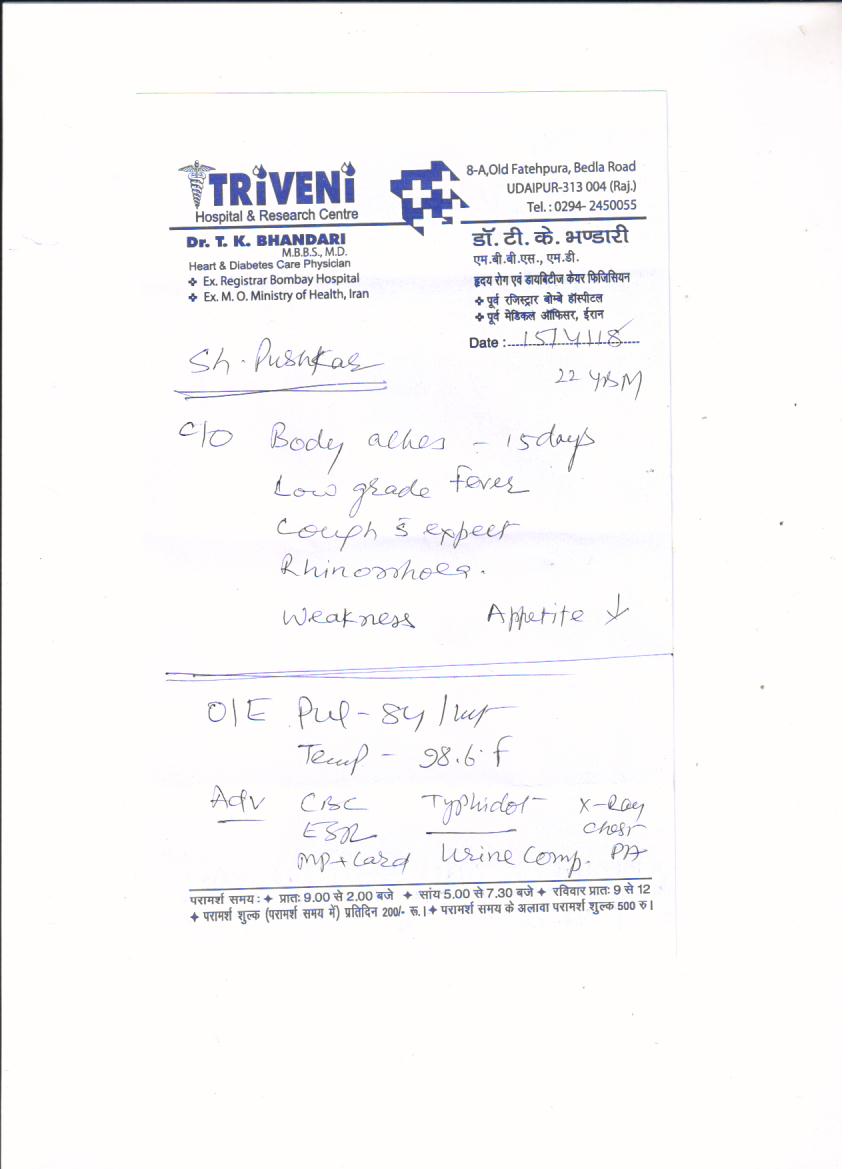 TRiVENi
Hospital & Research Centre
8-A,Old Fatehpura, Bedla Road
UDAIPUR-313 004 (Raj.)
Tel. : 0294- 2450055
Dr. T. K. BHANDARI
M.B.B.S., M.D.
Heart & Diabetes Care Physician
❖ Ex. Registrar Bombay Hospital
❖ Ex. M. O. Ministry of Health, Iran
डॉ. टी. के. भण्डारी
एम.बी.बी.एस., एम.डी.
हृदय रोग एवं डायबिटीज केयर फिजिसियन
❖ पूर्व रजिस्ट्रार बोम्बे हॉस्पीटल
❖ पूर्व मेडिकल ऑफिसर, ईरान
Date : 15/4/18
Sh. Pushkar
22 yrs M
C/O Body aches - 15 days
Low grade fever
Cough s̄ expect
Rhinorrhoea.
Weakness Appetite ↓
O/E Pul - 84/mt
Temp - 98.6° F
Adv CBC Typhidot X-Ray
ESR Chest
MP + Card Urine Comp. PA
परामर्श समय : ✦ प्रातः 9.00 से 2.00 बजे ✦ सांय 5.00 से 7.30 बजे ✦ रविवार प्रातः 9 से 12
✦ परामर्श शुल्क (परामर्श समय में) प्रतिदिन 200/- रू. । ✦ परामर्श समय के अलावा परामर्श शुल्क 500 रु ।